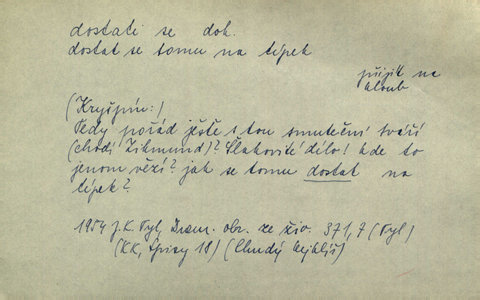 dostati se dok.
dostat se tomu na típek
přijít na
kloub
(Kryšpín:)
Tedy pořád ještě s tou smuteční tváří
(chodí Zikmund)? Šlakovité dílo! kde to
jenom vězí? jak se tomu dostat na
típek?
1954 J. K. Tyl, Dram. obr. ze živ. 371,7 (Tyl)
(KK, Spisy 18) (Chudý kejklíř)